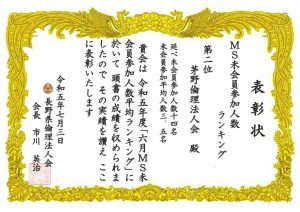 表彰状
MS未会員参加人数
ランキング
第二位
茅野倫理法人会 殿
延べ未会員参加人数十四名
未会員参加平均人数三、五名
貴会は令和五年度「六月MS未
会員参加人数平均ランキング」に
於いて頭書の成績を収められま
したので その実績を讃え ここ
に表彰いたします
令和五年七月三日
長野県倫理法人会
会長 市川 英治